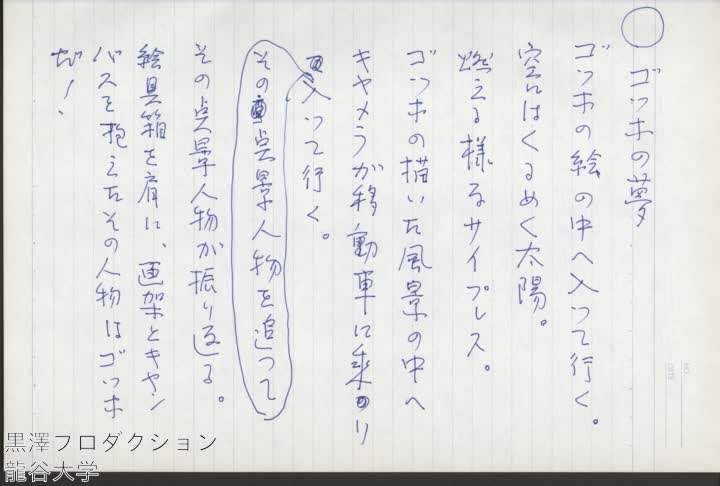 ゴッホの夢
ゴッホの絵の中へ入って行く。
空にはくるめく太陽。
燃える様なサイプレス。
ゴッホの描いた風景の中へ
キャメラが移動車に乗り
入って行く。
その点景人物を追って
その点景人物が振り返る。
絵具箱を肩に、画架とキャン
バスを抱えたその人物はゴッホ
だ!
黒澤プロダクション
龍谷大学